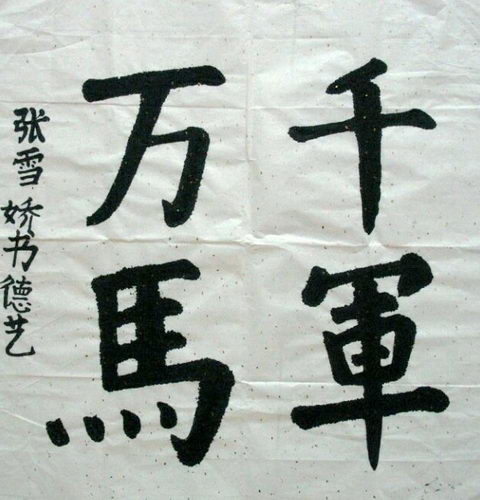 千軍
万馬
张雪娇书德艺